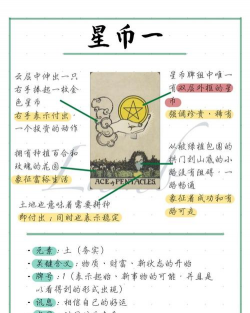 星币一
云层中伸出一只
右手捧起一枚金
色星币
右手表示付出,
一个投资的动作
拥有种植百合和
玫瑰的花园
象征富裕生活
土地也意味着需要耕种
即付出;同时也表示稳定
星币牌组中唯一
有双层外框的星
币
强调珍贵、稀有
从被绿植包围的
拱门到山巅的小
路没有阻碍,一
路畅通
象征着成功和有
路可走
ACE of PENTACLES
· 元素:土(务实)
· 关键含义:物质、财富、新状态的开始
· 牌号:1(表示起始、新事物的可能,并且是
以看得到的形式出现)
· 讯息:相信自己的好运